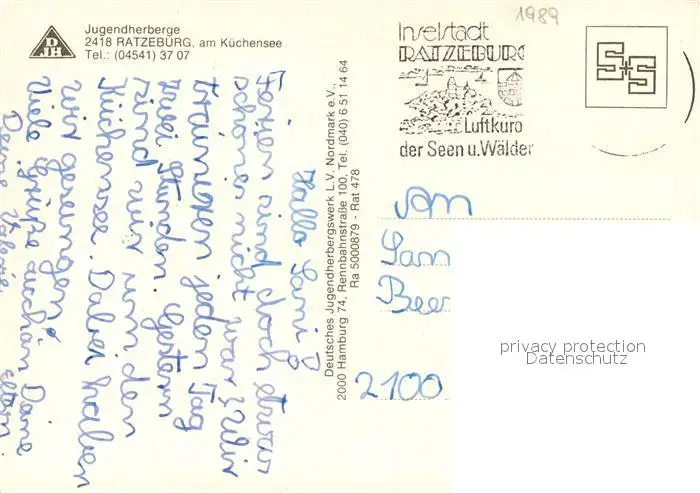 DJH
Jugendherberge
2418 RATZEBURG, am Küchensee
Tel.: (04541) 37 07
1989
Inselstadt
RATZEBURG
Luftkuro
der Seen u. Wälder
S+S
Deutsches Jugendherbergswerk L.V. Nordmark e.V.,
2000 Hamburg 74, Rennbahnstraße 100, Tel. (040) 6 51 14 64
Ra 5000879 - Rat 478
Hallo Sami!
Ferien sind doch etwas
schönes nicht war? Wir
trainieren jeden Tag
zwei Stunden. Gestern
sind wir um den
Küchensee. Dabei haben
wir gesungen
Viele Grüße auch an Deine
Eltern.
Deine Valerie
An
Sam
Beer
2100
privacy protection
Datenschutz